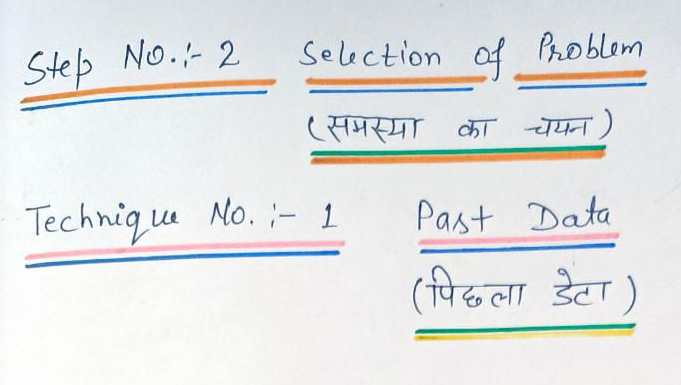 Step No.:- 2 Selection of Problem
(समस्या का चयन)
Technique No.:- 1 Past Data
(पिछला डेटा)